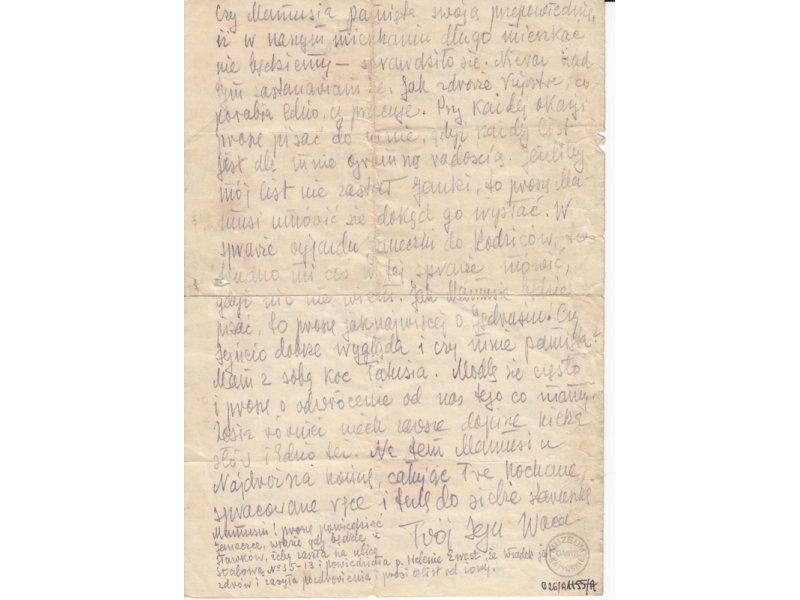 Czy Mamusia pamięta swoją przepowiednię,
iż w naszym mieszkaniu długo mieszkać
nie będziemy – sprawdziło się. Nieraz nad
tym zastanawiam się. Jak zdrowie co
porabia Edno, czy pracuje. Przy każdej okazji
proszę pisać do mnie, gdyż każdy list
jest dla mnie ogromną radością. Jeśliby
mój list nie zastał Janki, to proszę Ma-
musi umówić się dokąd go wysłać. W
sprawie wyjazdu Janeczki do Rodziców,
trudno mi coś w tej sprawie mówić,
gdyż nic nie wiem. Jak Mamusia będzie
pisać, to proszę jaknajwięcej o Jędrusiu. Czy
dobrze wygląda i czy mnie pamięta?
Mam z sobą koc Tatusia. Modlę się często
i proszę o odwrócenie od nas tego co mamy.
Zosia również niech zawsze dopisze kilka
słów i Edno też. Na tem Mamusiu
Najdroższa kończę, całując Twe kochane,
spracowane ręce i tulę do siebie
Twój Wacek
Mamusiu! proszę powiedzieć
Janeczce, wrazie gdy będzie w
ażeby zaszła na ulicę
Stalową No 35-13 i powiedziała p. Helenie że Władek jest
zdrów i zasyła pozdrowienia i prosi o list od żony.
MUZEUM